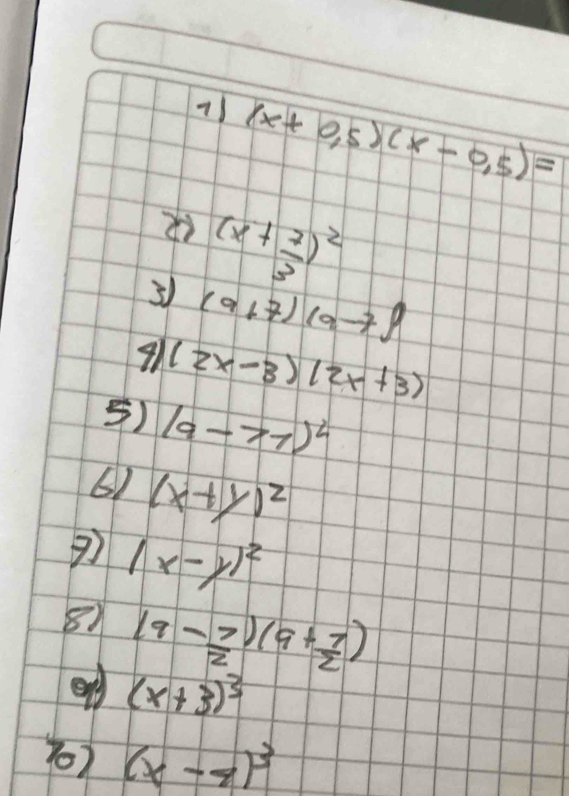 1) (x + 0,5)(x - 0,5) =
2) (x + 1/3)²
3) (a + 7)(a - 7)
4) (2x - 3)(2x + 3)
5) (a - 11)²
6) (x + y)²
7) (x - y)²
8) (a - 1/2)(a + 1/2)
9) (x + 3)³
10) (x - 4)³